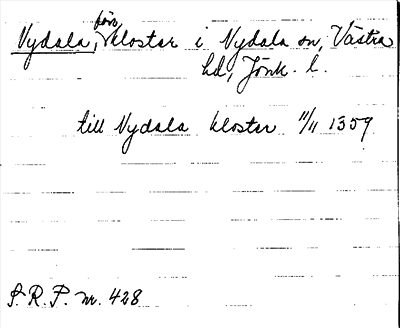 Nydala, förr kloster i Nydala sn, Västra
hd, Jönk. l.
till Nydala kloster 11/11 1359
S. R. P. nr. 428